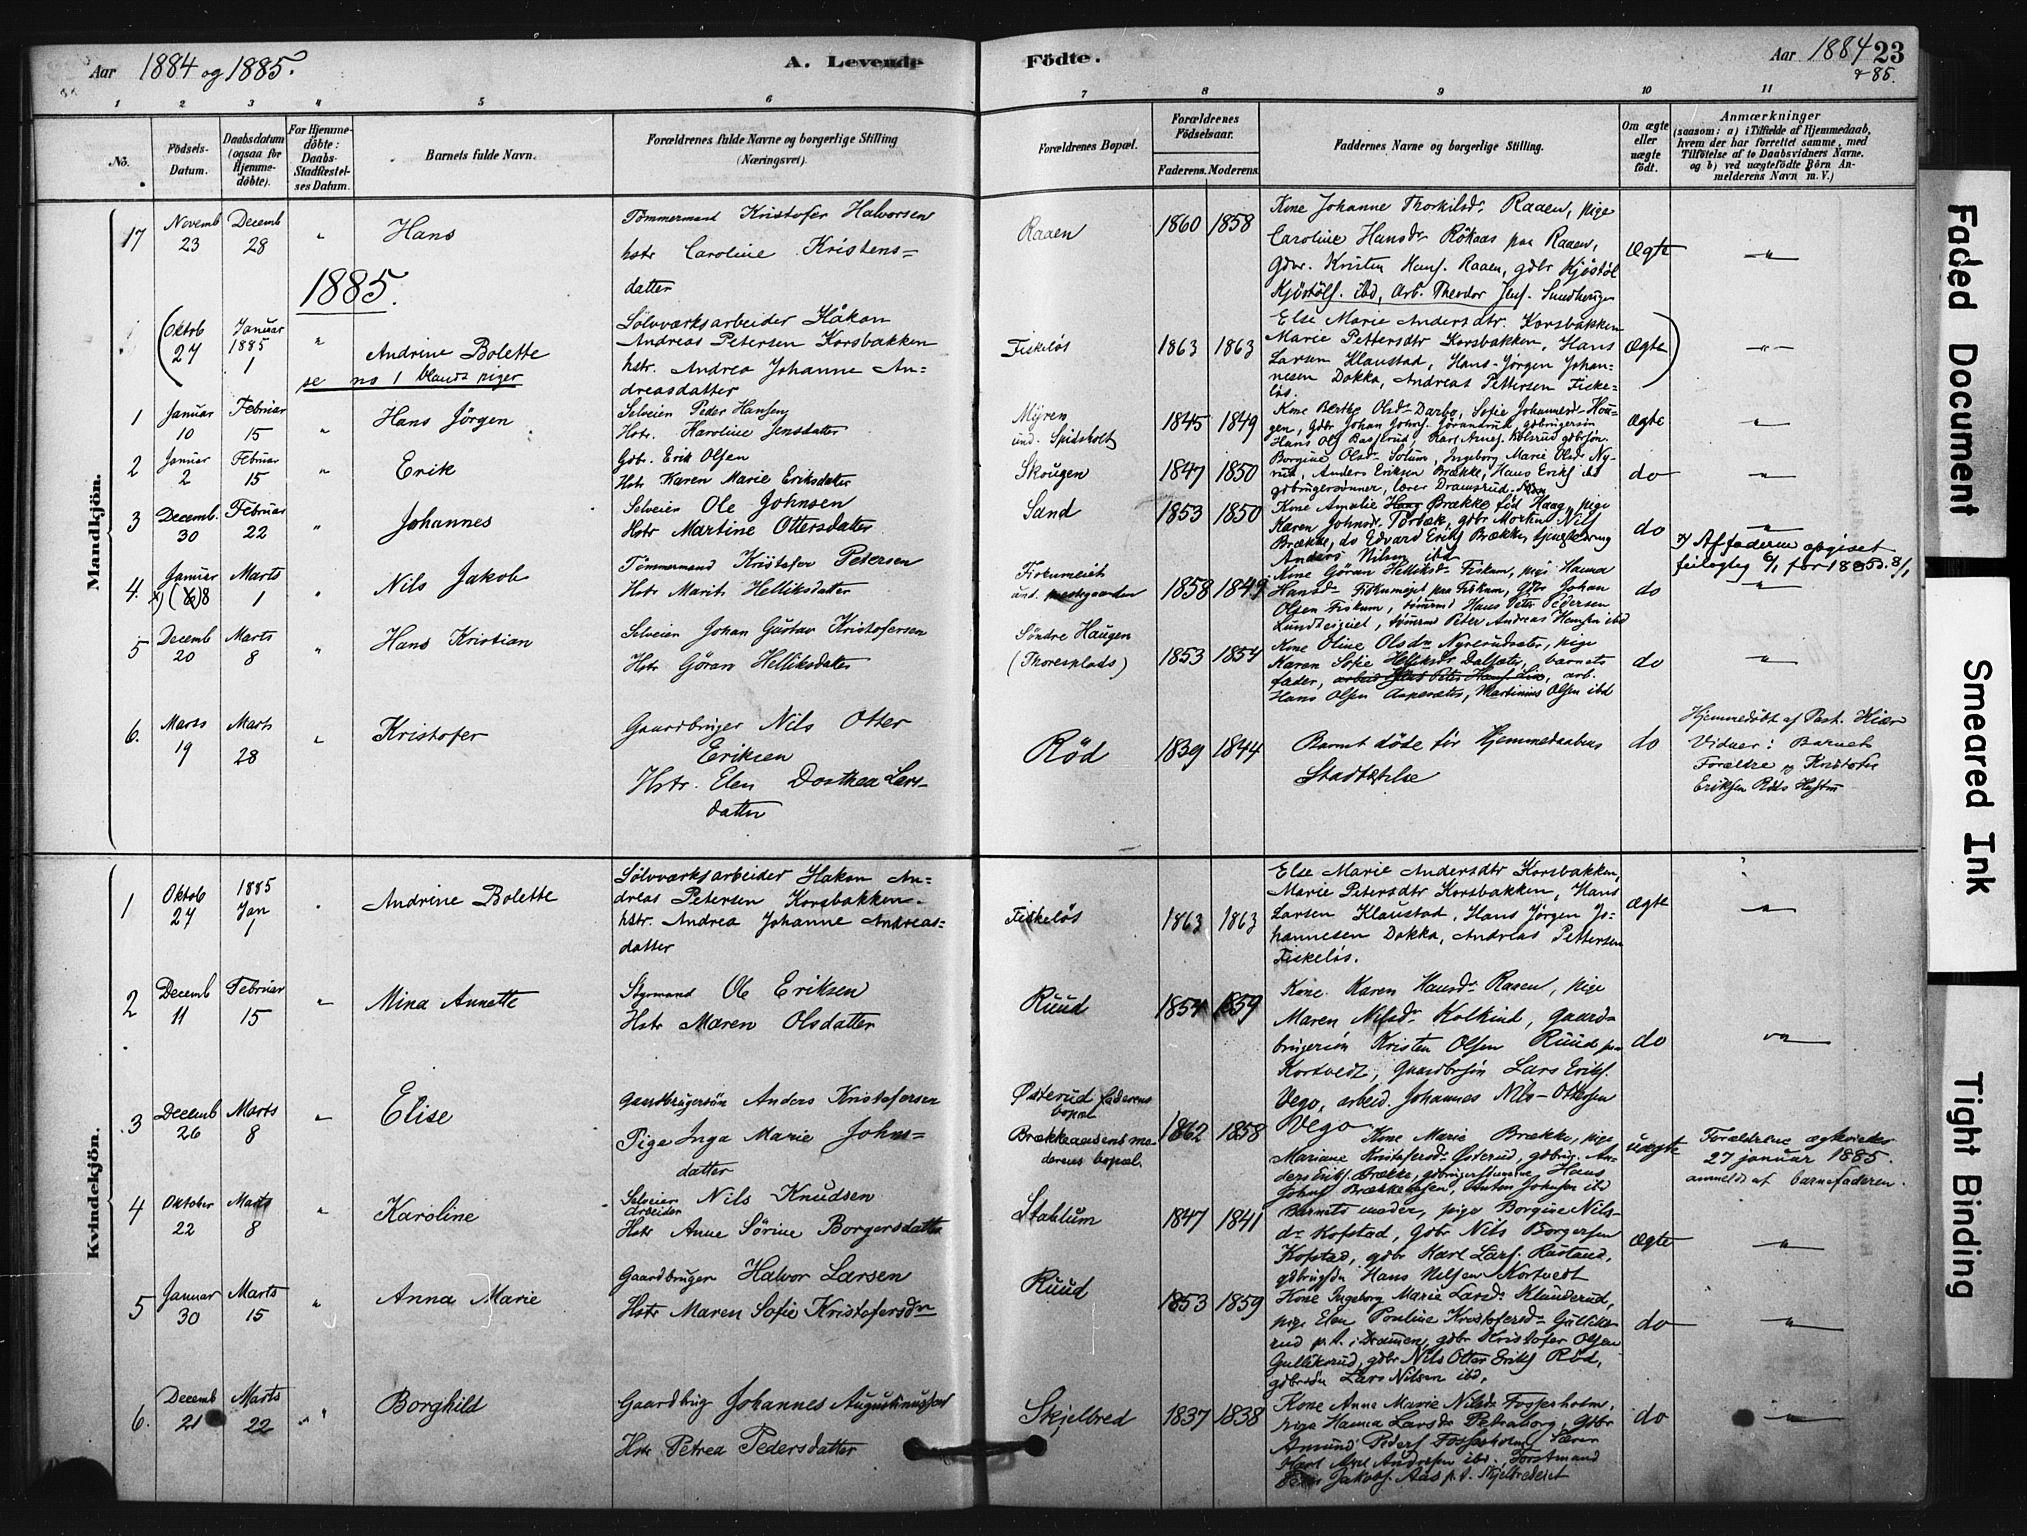 Aar 1884 og 1885.
A. Levende
Födte.
Aar 1884 23
& 85.
1 2 3 4 5 6 7 8 9 10 11
No.
Födsels-
Datum.
Daabsdatum
(ogsaa for
Hjemme-
döbte).
For Hjemme-
döbte:
Daabs-
Stadfæstel-
ses Datum.
Barnets fulde Navn.
Forældrenes fulde Navne og borgerlige Stilling
(Næringsvei).
Forældrenes Bopæl.
Forældrenes
Födselsaar.
Faderens. Moderens.
Faddernes Navne og borgerlige Stilling.
Om ægte
eller
uægte
födt.
Anmærkninger
(saasom: a) i Tilfælde af Hjemmedaab,
hvem der har forrettet samme, med
Tilföielse af to Daabsvidners Navne,
og b) ved uægtefödte Börn An-
melderens Navn m. V.)
Mandkjön.
17
Novemb
23
Decemb
28
"
Hans
Tömmermand Kristofer Halvorsen
hstr Caroline Kristens=
datter
Raaen
1860 1858
Kone Johanne Thorkilsdr Raaen, pige
Caroline Hansdr Rökaas paa Raaen,
Gdbr. Kristen Hans. Raaen, gdbr Kjöstöl
Kjöstöls. ibd, Arb. Theodor Jens.
Ægte
"
1885.
(Oktob
27
Januar
1885
1
"
Andrine Bolette
se no 1 blandt piger
Sölvværksarbeider Håkon
Andreas Petersen Korsbakken
hstr. Andrea Johanne An=
dreasdatter
Fiskelös
1863 1863
Else Marie Andersdtr. Korsbakken
Marie Pettersdtr Korsbakken, Hans
Larsen Klaustad, Hans-Jörgen Johan-
nesen Dokka, Andreas Pettersen Fiske-
lös.
Ægte)
"
1
Januar
10
Februar
15
"
Hans Jörgen
Selveier Peder Hansen
Hstr. Karoline Jensdatter
Myren
und. Spidsholt
1845 1849
Kone Berthe Olsdr Darbo, Sofie Johannesdr Hou-
gen, Gdbr Johan
Hans Ols
Ægte
"
2
Januar
2
Februar
15
"
Erik
Gdbr. Erik Olsen
Hstr Karen Marie Eriksdatter
Skougen
1847 1850
Borgine Olsdr Solum, Ingeborg Marie Olsdr Ny-
rud, Anders Eriksen Brække, Hans Eriks ibd
gdbrugersönner, lærer Dramsrud.
do
"
3
Decemb.
30
Februar
22
"
Johannes
Selveier Ole Johnsen
Hstr Martine Ottersdatter
Sand
1853 1850
Kone Amalie Haag Brække föd Haag, pige
Karen Johnsdr Torbæk, gdbr Morten Nils
Brække, do Edvard Eriks Brække,
Anders Nilsen ibd
do
"
4.
Januar
x) (6) 8
Marts
1
"
Nils Jakob
Tömmermand Kristofer Petersen
Hstr Marit Helliksdatter
Fiskumeiet
und. prestegaarden
1858 1849
Kone Göran Helliksdr Fiskum, pige Hanna
Hansdr Fiskumeiet paa Fiskum, Gdbr Johan
Olsen Fiskum, tömmermd Hans Peter Pedersen
Lundteigeiet, tömrmd Peter Andreas ibd
do
x) Af faderen opgivet
feilagtig 6/1 for 1885 8/1
"
5
Decemb
20
Marts
8
"
Hans Kristian
Selveier Johan Gustav Kristofersen
Hstr Göran Helliksdatter
Söndre Haugen
(Thoresplads)
1853 1854
Kone Oline Olsdr Nyrerudsæter, pige
Karen Sofie Helliksdr Dalsæter, barnets
fader, arb.
Hans Olsen Aaseræter, Martinius Olsen ibd
do
"
6.
Marts
19
Marts
28
"
Kristofer
Gaardbruger Nils Otter
Eriksen
Hstr. Elen Dorthea Lars-
datter
Röd
1839 1844
Barnet döde för Hjemmedaabens
Stadfæstelse
do
Hjemmedöbt af Past. Kiær
Vidner: Barnets
Forældre og Kristofer
Eriksen Röds Hustru
Kvindekjön.
1
Oktob
27
1885
Jan
1
"
Andrine Bolette
Sölvværksarbeider Håkon An=
dreas Petersen Korsbakken.
hstr. Andrea Johanne Andreas=
datter
Fiskelös
1863 1863
Else Marie Andersdtr Korsbakken,
Marie Petersdtr Korsbakken, Hans
Larsen Klaustad, Hans Jörgen Jo=
hannesen Dokka, Andreas Pettersen
Fiskelös.
Ægte
"
2
Decemb
11
Februar
15
"
Mina Annette
Styrmand Ole Eriksen
Hstr Maren Olsdatter
Ruud
1854 1859
Kone Karen Hansdr Raaen, pige
Maren Nilsdr Kolkind, Gaard-
brugersön Kristen Olsen Ruud paa
Kortvedt, Gaardbrsön Lars Eriks.
Vego, arbeid. Johannes Nils-Ottersen
Vego
do
"
3
Decemb
26
Marts
8
"
Elise
Gaardbrugersön Anders Kristofersen
Pige Inga Marie Johns=
datter
Østerud faderens
bopæl
Brækkeaasens mo-
derens bopæl.
1862 1858
Kone Marie Brække, pige
Mariane Kristofersdr Østerud, gdbrug. An-
ders Eriks. Brække, gdbrugersönnerne, Hans
Johns Brækkeaasen, Anton Johnsen ibd
uægte
Forældrene ægteviedes
27 januar 1885.
anmeldt af barnefaderen.
4
Oktober
22
Marts
8
"
Karoline
Selveier Nils Knudsen
Arbeider
Hstr Anne Sörine Borgersdatter
Stahlum
1847 1841
Barnets moder, pige Borgine Nils-
dr Kofstad, Gdbr Nils Borgersen
Kofstad, gdbr Karl Lars. Rustand,
gdbrugsön Hans Nilsen Kortvedt
ægte
"
5
Januar
30
Marts
15
"
Anna Marie
Gaardbruger Halvor Larsen
Hstr Maren Sofie Kristofersdr
Ruud
1853 1859
Kone Ingeborg Marie Larsdr Klunderud,
pige Elen Pouline Kristofersdr Gullikse-
rud p.t. i Drammen, gdbr Kristofer Olsen
Gulliksrud, gdbr Nils Otter Eriks Röd,
gdbrsön Lars Nilsen ibd.
do
"
6.
Decemb
21
Marts
22
"
Borghild
Gaardbrug Johannes Augustinussen
Hstr Petrea Pedersdatter
Skjelbred
1837 1838
Kone Anne Marie Nilsdr Fossesholm,
pige Hanna Larsdr Petraborg, Gdbr
Amund Peders Fossesholm, Lærer
Karl Axel Andersen ibd. Forstmand
Jakobs. Aas p.t. Skjelbredeiet
do
"
Faded Document
Smeared Ink
Tight Binding